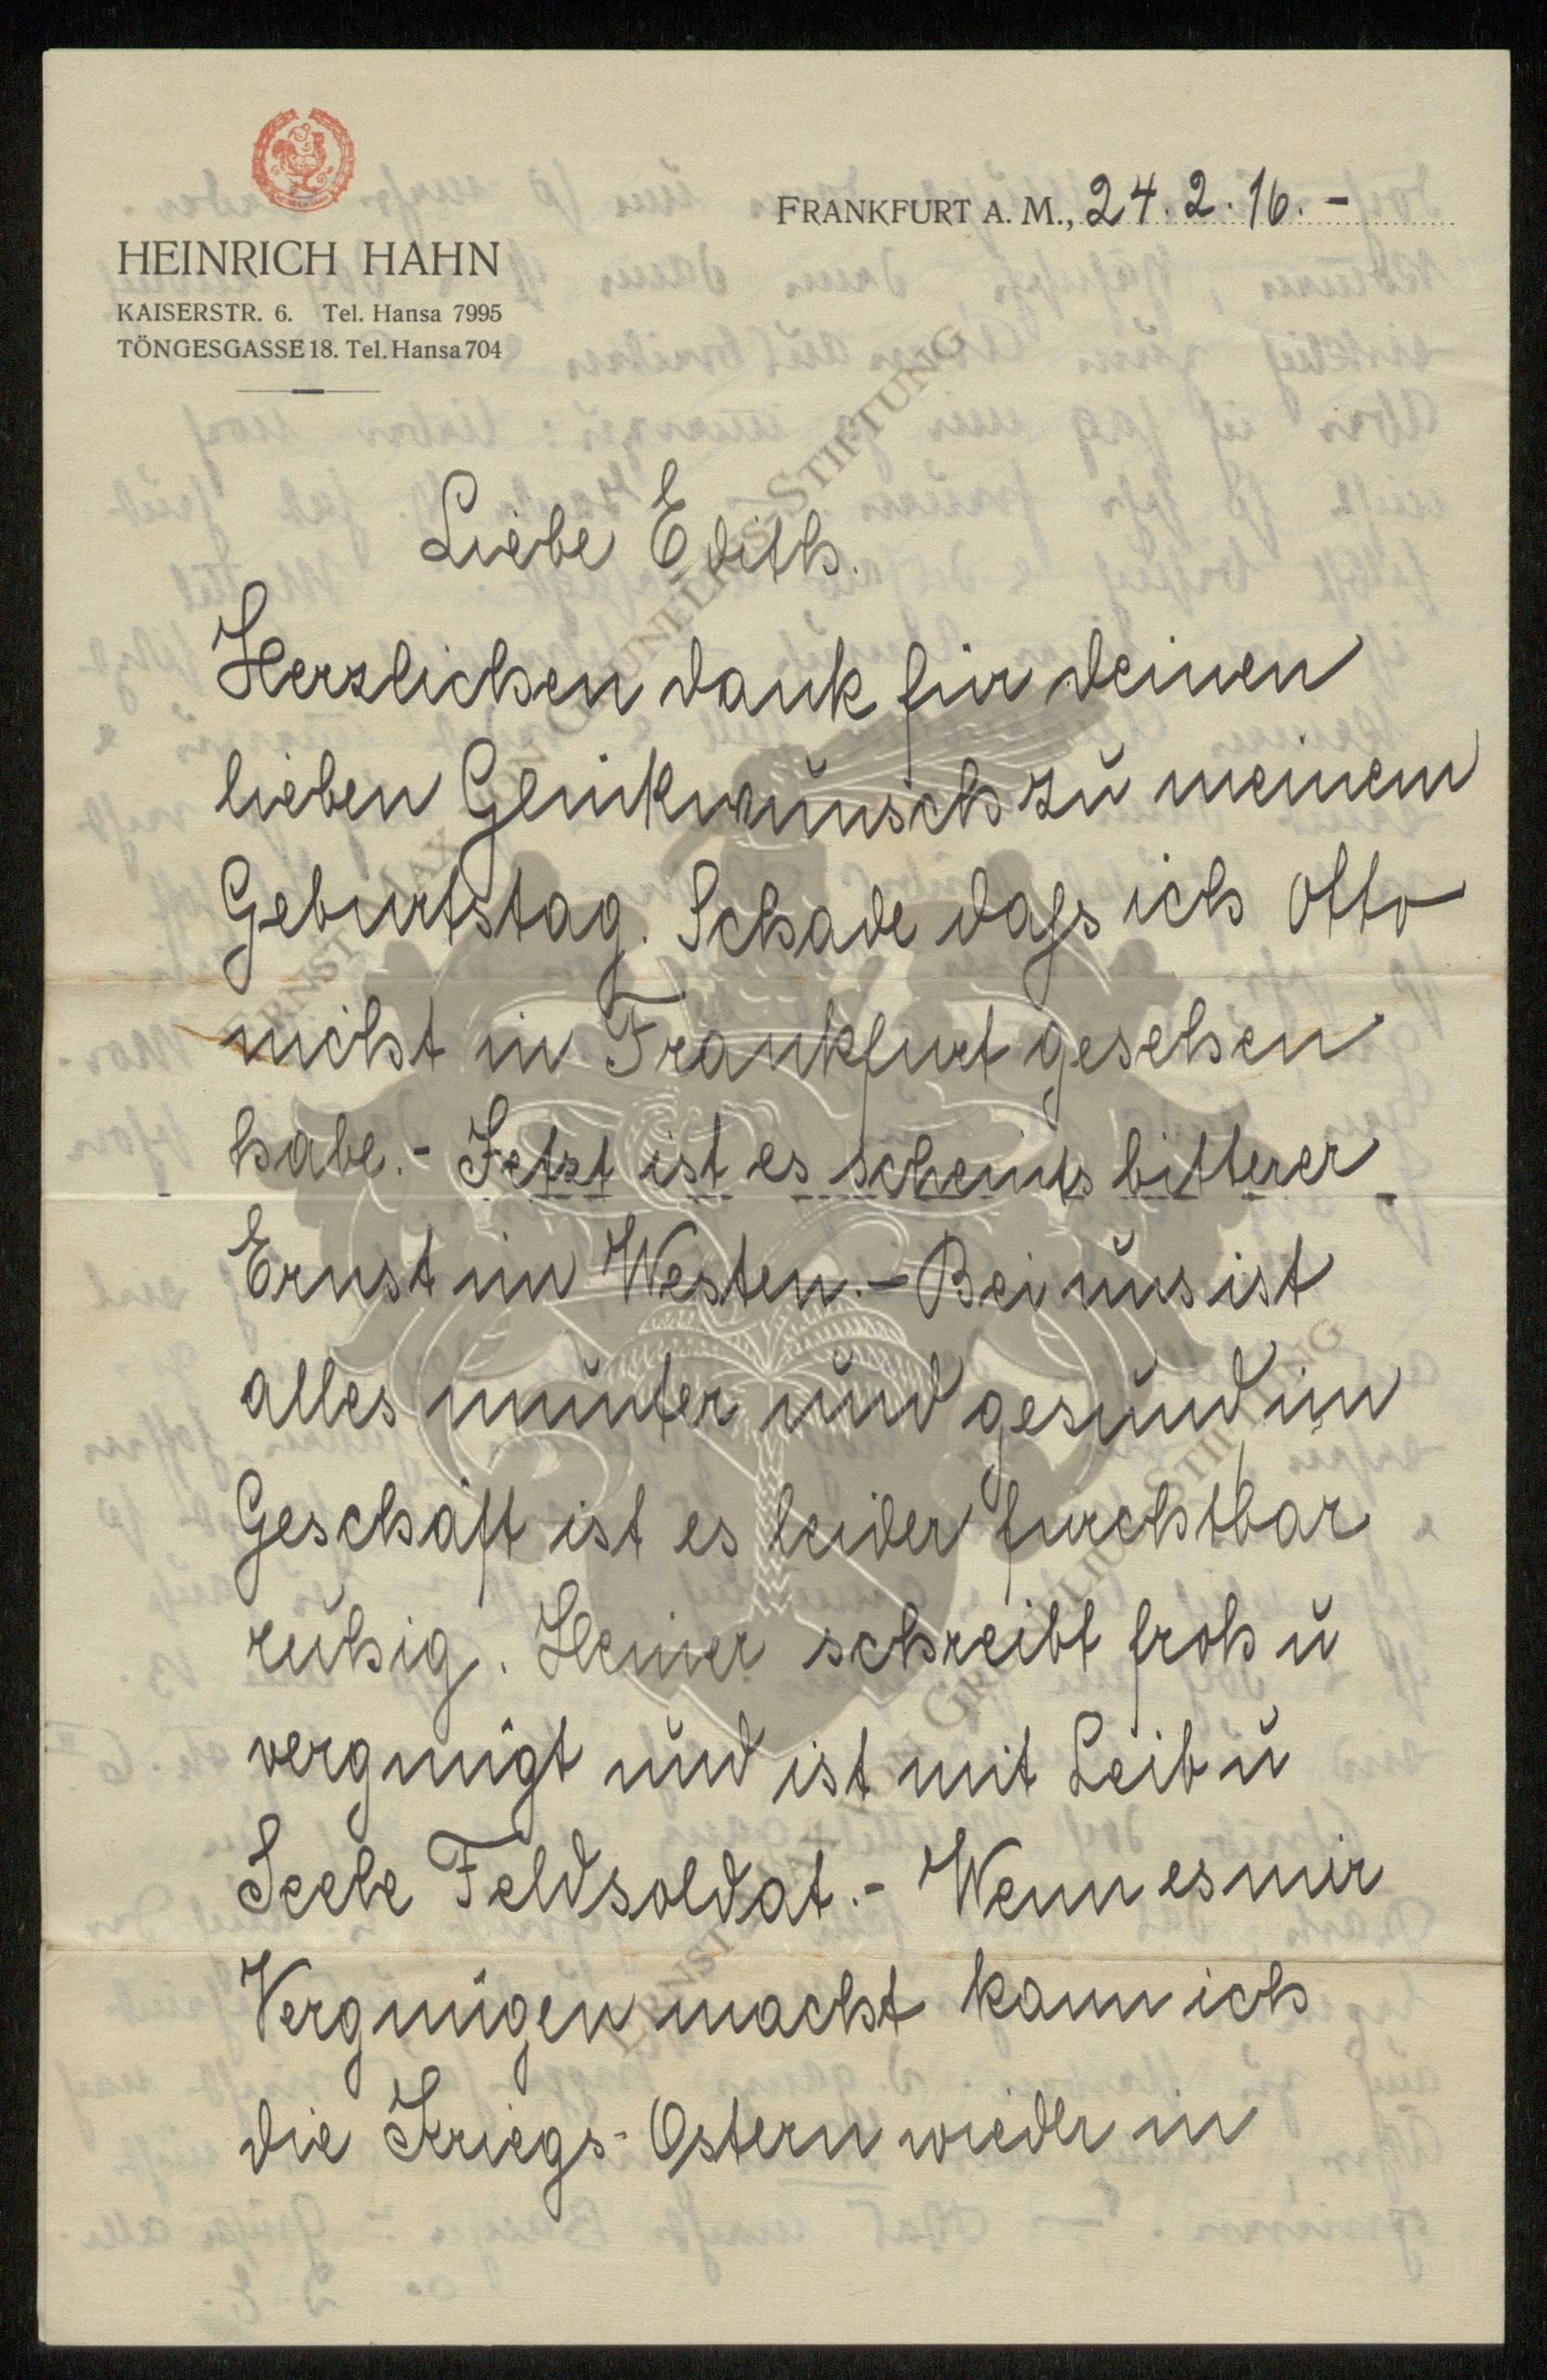 FRANKFURT A. M., 24.2.16.-
HEINRICH HAHN
KAISERSTR. 6. Tel. Hansa 7995
TÖNGESGASSE 18. Tel. Hansa 704
Liebe Edith.
Herzlichen dank für deinen
lieben Glückwunsch zu meinem
Geburtstag. Schade dass ich Otto
nicht in Frankfurt gesehen
habe.- Jetzt ist es scheints bitterer
Ernst im Westen.- Bei uns ist
alles munter und gesund im
Geschäft ist es leider furchtbar
ruhig. Heiner schreibt froh u
vergnügt und ist mit Leib u
Seele Feldsoldat.- Wenn es mir
Vergnügen macht kann ich
die Kriegs-Ostern wieder in
ERNST MAX VON GRUNELIUS-STIFTUNG
ERNST MAX VON GRUNELIUS-STIFTUNG